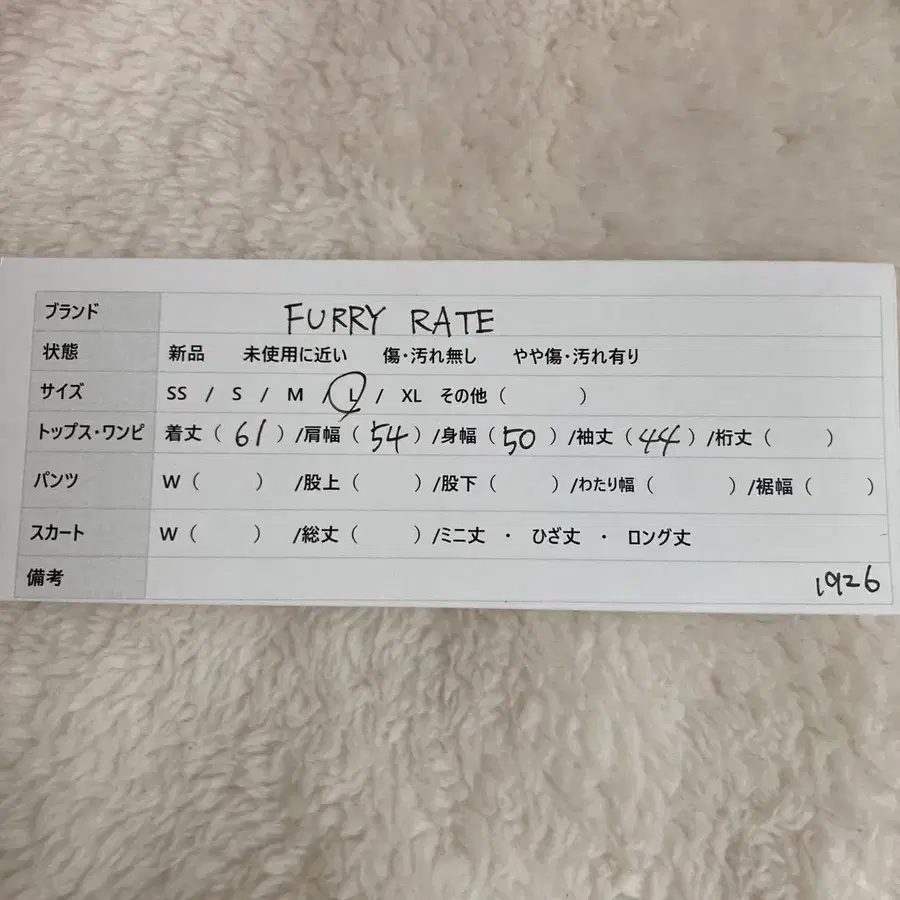 ブランド FURRY RATE
状態 新品 未使用に近い 傷・汚れ無し やや傷・汚れ有り
サイズ SS / S / M / L / XL その他 ( )
トップス・ワンピ 着丈 ( 61 ) /肩幅 ( 54 ) /身幅 ( 50 ) /袖丈 ( 44 ) /裄丈 ( )
パンツ W ( ) /股上 ( ) /股下 ( ) /わたり幅 ( ) /裾幅 ( )
スカート W ( ) /総丈 ( ) /ミニ丈 ・ ひざ丈 ・ ロング丈
備考 1926